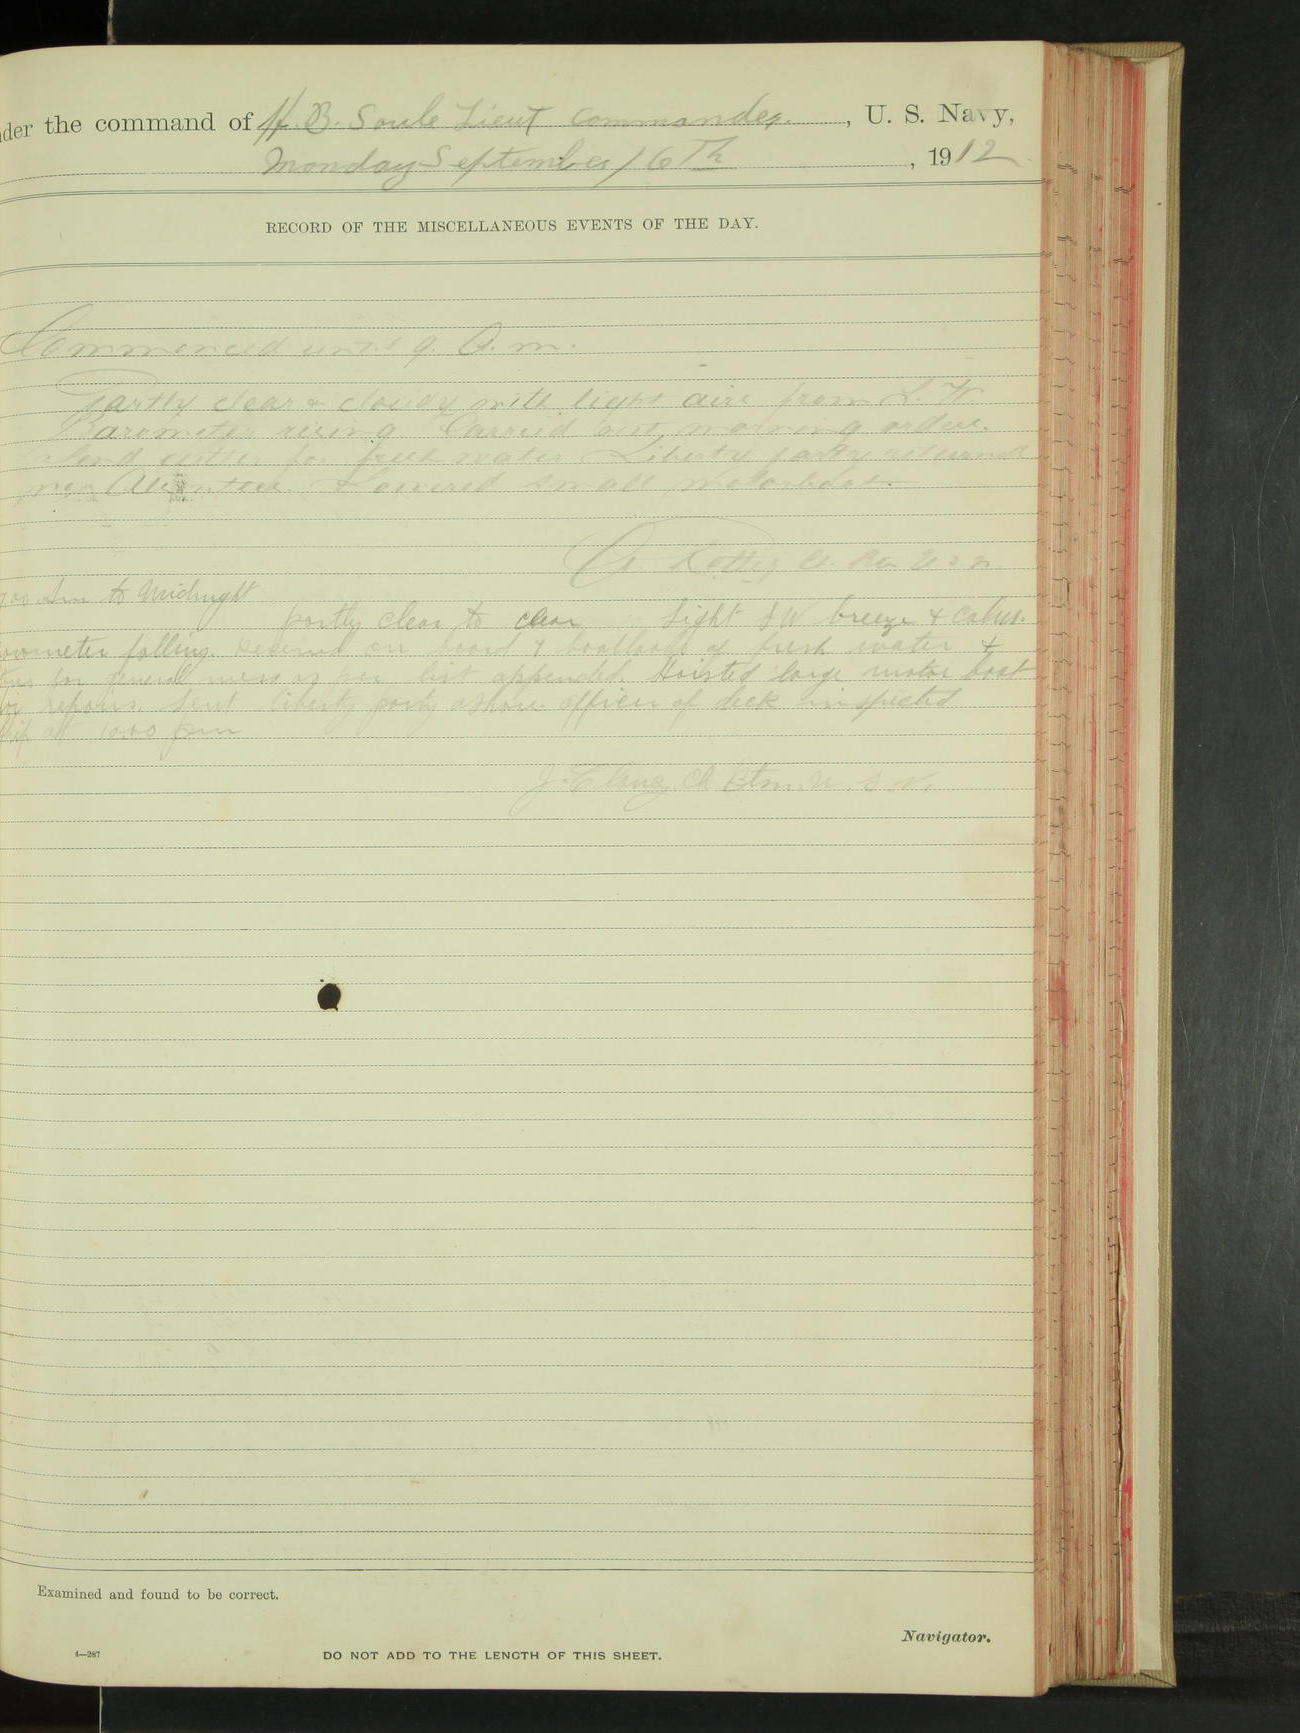 nder the command of H. B. Soule Lieut Commander, U. S. Navy,
Monday September 16th, 1912
RECORD OF THE MISCELLANEOUS EVENTS OF THE DAY.
Commenced until 9. A. m.
Partly clear & cloudy with light airs from S. W
Barometer rising Carried out morning orders.
Send cutter for fresh water Liberty party returned
no Absentees. Lowered small motorboat.
to Midnight
partly clear to clear Light SW breeze & calm.
rometer falling. Received on board 4 boatloads of fresh water &
for general mess as per list appended. Hoisted large motor boat
for repairs. Sent liberty party ashore. officer of deck inspected
at 10.00 pm
Ch Btsn. U. S. N.
Examined and found to be correct.
Navigator.
1—287
DO NOT ADD TO THE LENGTH OF THIS SHEET.